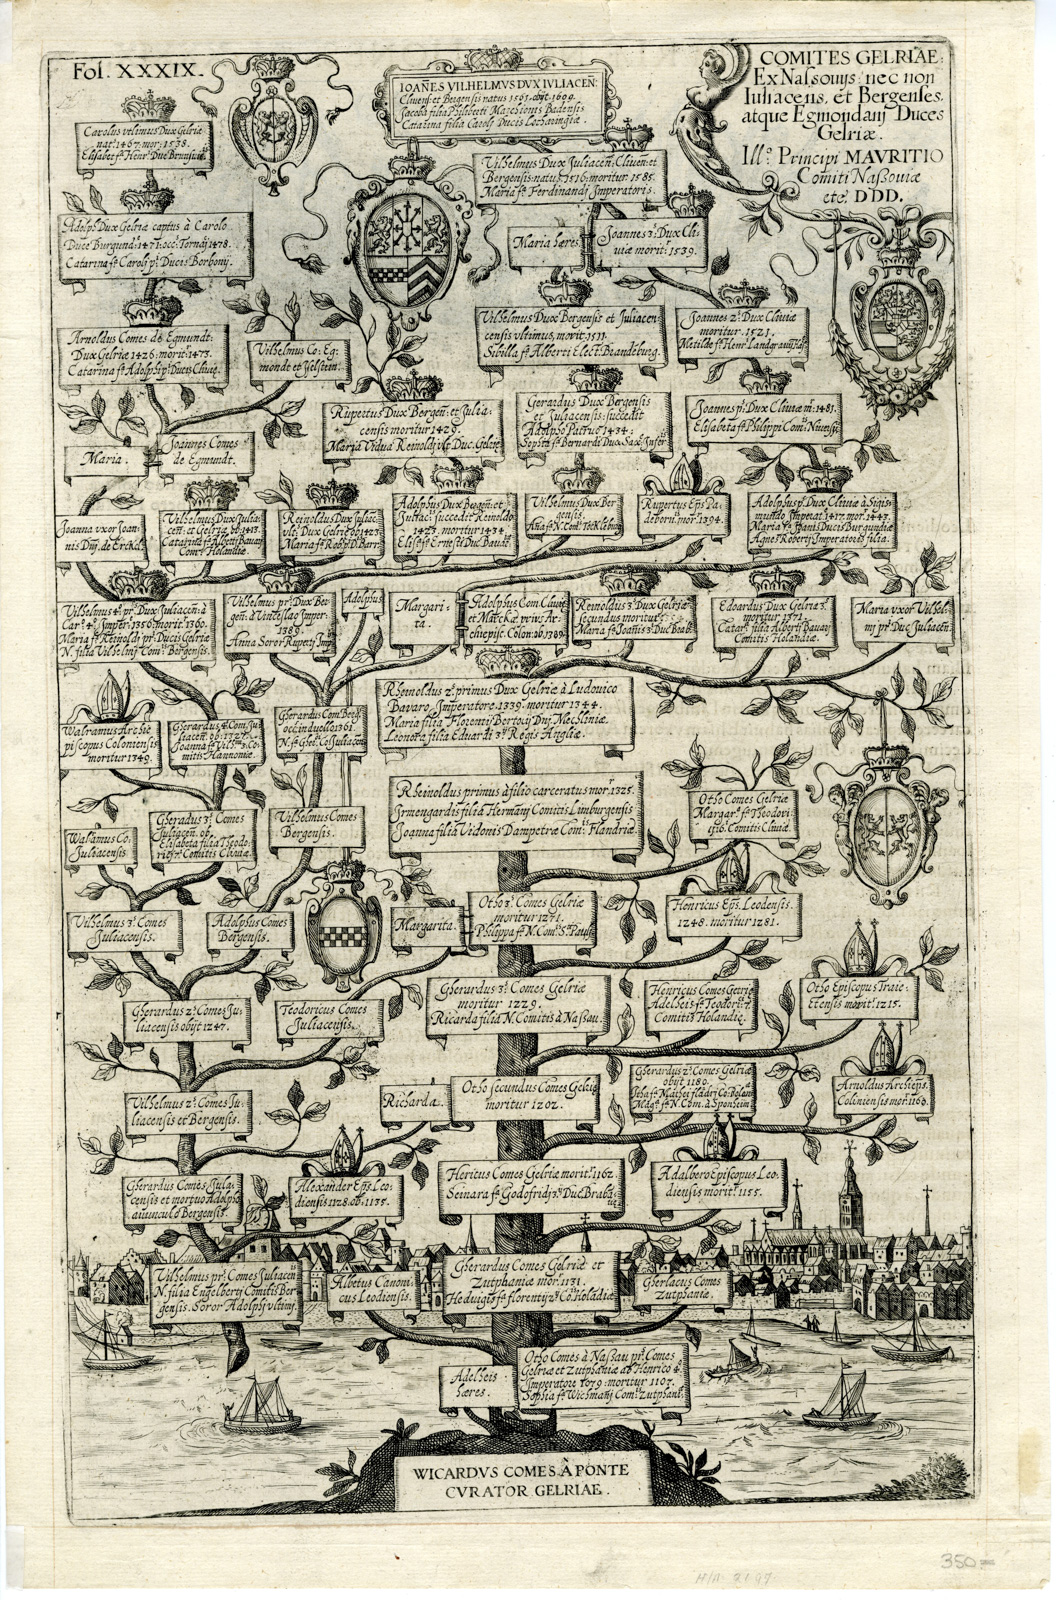 Fol. XXXIX.
COMITES GELRIÆ:
Ex Naſſouijs: nec non
Iuliacens, et Bergenſes.
atque Egmondanj Duces
Gelriæ.
Ill.º Principi MAVRITIO
Comiti Naßouiæ
etc. DDD.
IOAÑES VILHELMVS DVX IVLIACEÑ:
Cliuens: et Bergensis natus 1561. obijt. 1609.
Jacoba filia Philiberti Marchionis Badensis
Catarina filia Caroli Ducis Lotharingiæ.
Carolus vltimus Dux Gelriæ
nat: 1467. mor: 1538.
Elisabet fª Henrˢ Duc Brunſuic
Vilhelmus Dux Juliaceñ: Cliuen: et
Bergensis: natus 1516: moritur 1585.
Maria fª Ferdinandj Imperatoris.
Adolphˢ Dux Gelriæ captus à Carolo
Duce Burgundiæ 1471: occ: Tornaj 1478.
Catarina fª Carolj pˢ: Ducis Borbonij.
Maria hæres.
Joannes 3ˢ: Dux Cli-
uiæ morit: 1539.
Arnoldus Comes de Egmundt:
Dux Gelriæ 1426: morit: 1473.
Catarina fª Adolphj pˢ: Ducis Cliuiæ.
Vilhelmus Co: Eg-
mondt et Yſelſtein.
Vilhelmus Dux Bergensis et Juliacen-
censis vltimus, morit. 1511.
Sibilla fª Alberti Elect: Brandeburg.
Joannes 2ˢ: Dux Cliuiæ
moritur. 1521.
Matilde fª Henrˢ Landgrauij Haſ
Rupertus Dux Bergeñ: et Julia-
censis moritur 1429.
Maria Vidua Reinoldj vlt: Duc. Gelriæ
Gerardus Dux Bergensis
et Juliacensis: succedit
Adolpho Patruo 1434:
Sophia fª Bernardi Duc: Sax: Infer
Joannes pˢ: Dux Cliuiæ m: 1481.
Elisabeta fª Philippi Com: Niuens:
Maria.
Joannes Comes
de Egmundt.
Joanna vxor Joan-
nis Dnj. de Erckel.
Vilhelmus Dux Julia-
ceñ: et Gelriæ, ob: 1402.
Catarina fª Alberti Bauari
Com: Holandiæ.
Reinoldus Dux Juliac:
vlt: Dux Gelriæ ob: 1423
Maria fª Robˢ D. Barri
Adolphus Dux Bergeñ: et
Juliac: succedit Reinoldo
1423. moritur 1434
Elisᵗ fª Ernesti Duc Bauar:
Vilhelmus Dux Ber-
gensis.
Aña fª N. Com: Tecklebur:
Rupertus Epˢ Pa-
deborn. mor: 1394.
Adolphus pˢ. Dux Cliuiæ à Sigis-
mundo Imperat: 1417. mor: 1447.
Maria fª Joanis Ducis Burgundiæ
Agnes Robertj Imperatoris filia.
Vilhelmus 4ˢ: pˢ: Dux Juliaceñ: à
Carº: 4º: Imper: 1356. morit: 1360.
Maria fª Reinoldj pˢ: Ducis Gelriæ
N. filia Vilhelmj Comᵗⁱˢ Bergensis.
Vilhelmus pˢ: Dux Ber-
geñ: à Vincislao Imper:
1389.
Anna Soror Rupertj Imp:
Adolphus
Margari-
ta.
Adolphus Com: Cliuiæ
et Marckæ prius Ar-
chiepiſc. Colon: ob. 1389.
Reinoldus 3ˢ: Dux Gelriæ
secundus moritur
Maria fª Joanis 3ˢ: Duc Brab:
Edoardus Dux Gelriæ 3ˢ:
moritur 1371.
Catarˢ filia Albertj Bauarj
Comitis Holandiæ.
Maria vxor Vilhel-
mj prˢ: Duc. Juliaceñ:
Walramus Archie-
piscopus Coloniensis
moritur 1349.
Gherardus 4ˢ Com: Ju-
liaceñ: ob: 1327.
Joanna fª Vilhˢ 3ˢ. Co-
mitis Hannoniæ.
Gherardus Com: Berge:
occ: in duello 1361.
N. fª Gher: Co: Juliacen
Rheinoldus 2ˢ: primus Dux Gelriæ à Ludouico
Bauaro Imperatore. 1339. moritur 1344.
Maria filia Florentij Bertoij Dnj. Mechliniæ.
Leonora filia Eduardi 3ⁱˢ: Regis Angliæ.
Rheinoldus primus à filio carceratus mor: 1325.
Irmengardis filia Hermanj Comitis Limburgensis
Joanna filia Vidonis Dampetræ Comⁱˢ: Flandriæ.
Otho Comes Gelriæ
Margarˢ: fª Theodori-
ci 6: Comitis Cliuiæ.
Walamus Co:
Juliacensis.
Gheradus 3ˢ: Comes
Juliaceñ. ob.
Elisabeta filia Theodo-
ricj 7: Comitis Cliuiæ.
Vilhelmus Comes
Bergensis.
Vilhelmus 3ˢ: Comes
Juliacensis.
Adolphus Comes
Bergensis.
Margarita.
Otho 3ˢ: Comes Gelriæ
moritur 1271.
Philippa fª N. Com: Sⁱ Pauli
Henricus Epˢ. Leodensis.
1248. moritur 1281.
Gherardus 2ˢ: Comes Ju-
liacensis obijt 1247.
Teodoricus Comes
Juliacensis.
Gherardus 3ˢ. Comes Gelriæ
moritur 1229.
Ricarda filia N. Comitis à Naßau.
Henricus Comes Gelriæ
Adelheis fª Teodorˢ 7:
Comitis Holandiæ.
Otho Episcopus Traie-
ctensis morit: 1215.
Vilhelmus 2ˢ: Comes Ju-
liacensis et Bergensis.
Richarda.
Otho secundus Comes Gelriæ
moritur 1202.
Gherardus 2ˢ: Comes Gelriæ
obijt 1180.
Arnoldus Archiepˢ.
Coloniensis mor:
Gherardus Comes Julia-
censis et mortuo Adolpho
auunculo Bergensis.
Alexander Epˢ. Leo-
diensis 1128. ob: 1135.
Hericus Comes Gelriæ morit: 1162.
Seinara fª Godofridj 3ˢ: Duc. Braban-
tiæ
Adalbero Episcopus Leo-
diensis morit: 1155.
Vilhelmus prˢ: Comes Juliaceñ
N. filia Engelbertj Comitis Ber-
gensis. Soror Adolphj vltimj.
Albetus Canoni-
cus Leodiensis.
Gherardus Comes Gelriæ et
Zutphaniæ mor: 1131.
Heduigis fª florentij 2ⁱ: Coˢ: Holãdiæ
Gherlacus Comes
Zutphaniæ.
Adelheis
hæres.
Otho Comes à Naßau prˢ: Comes
Gelriæ et Zutphaniæ ab Henrico 4º:
Imperatore 1079: moritur 1107.
Sophia fª Wichmanj Comⁱˢ: Zutphaniˢ:
WICARDVS COMES À PONTE
CVRATOR GELRIAE.
350=